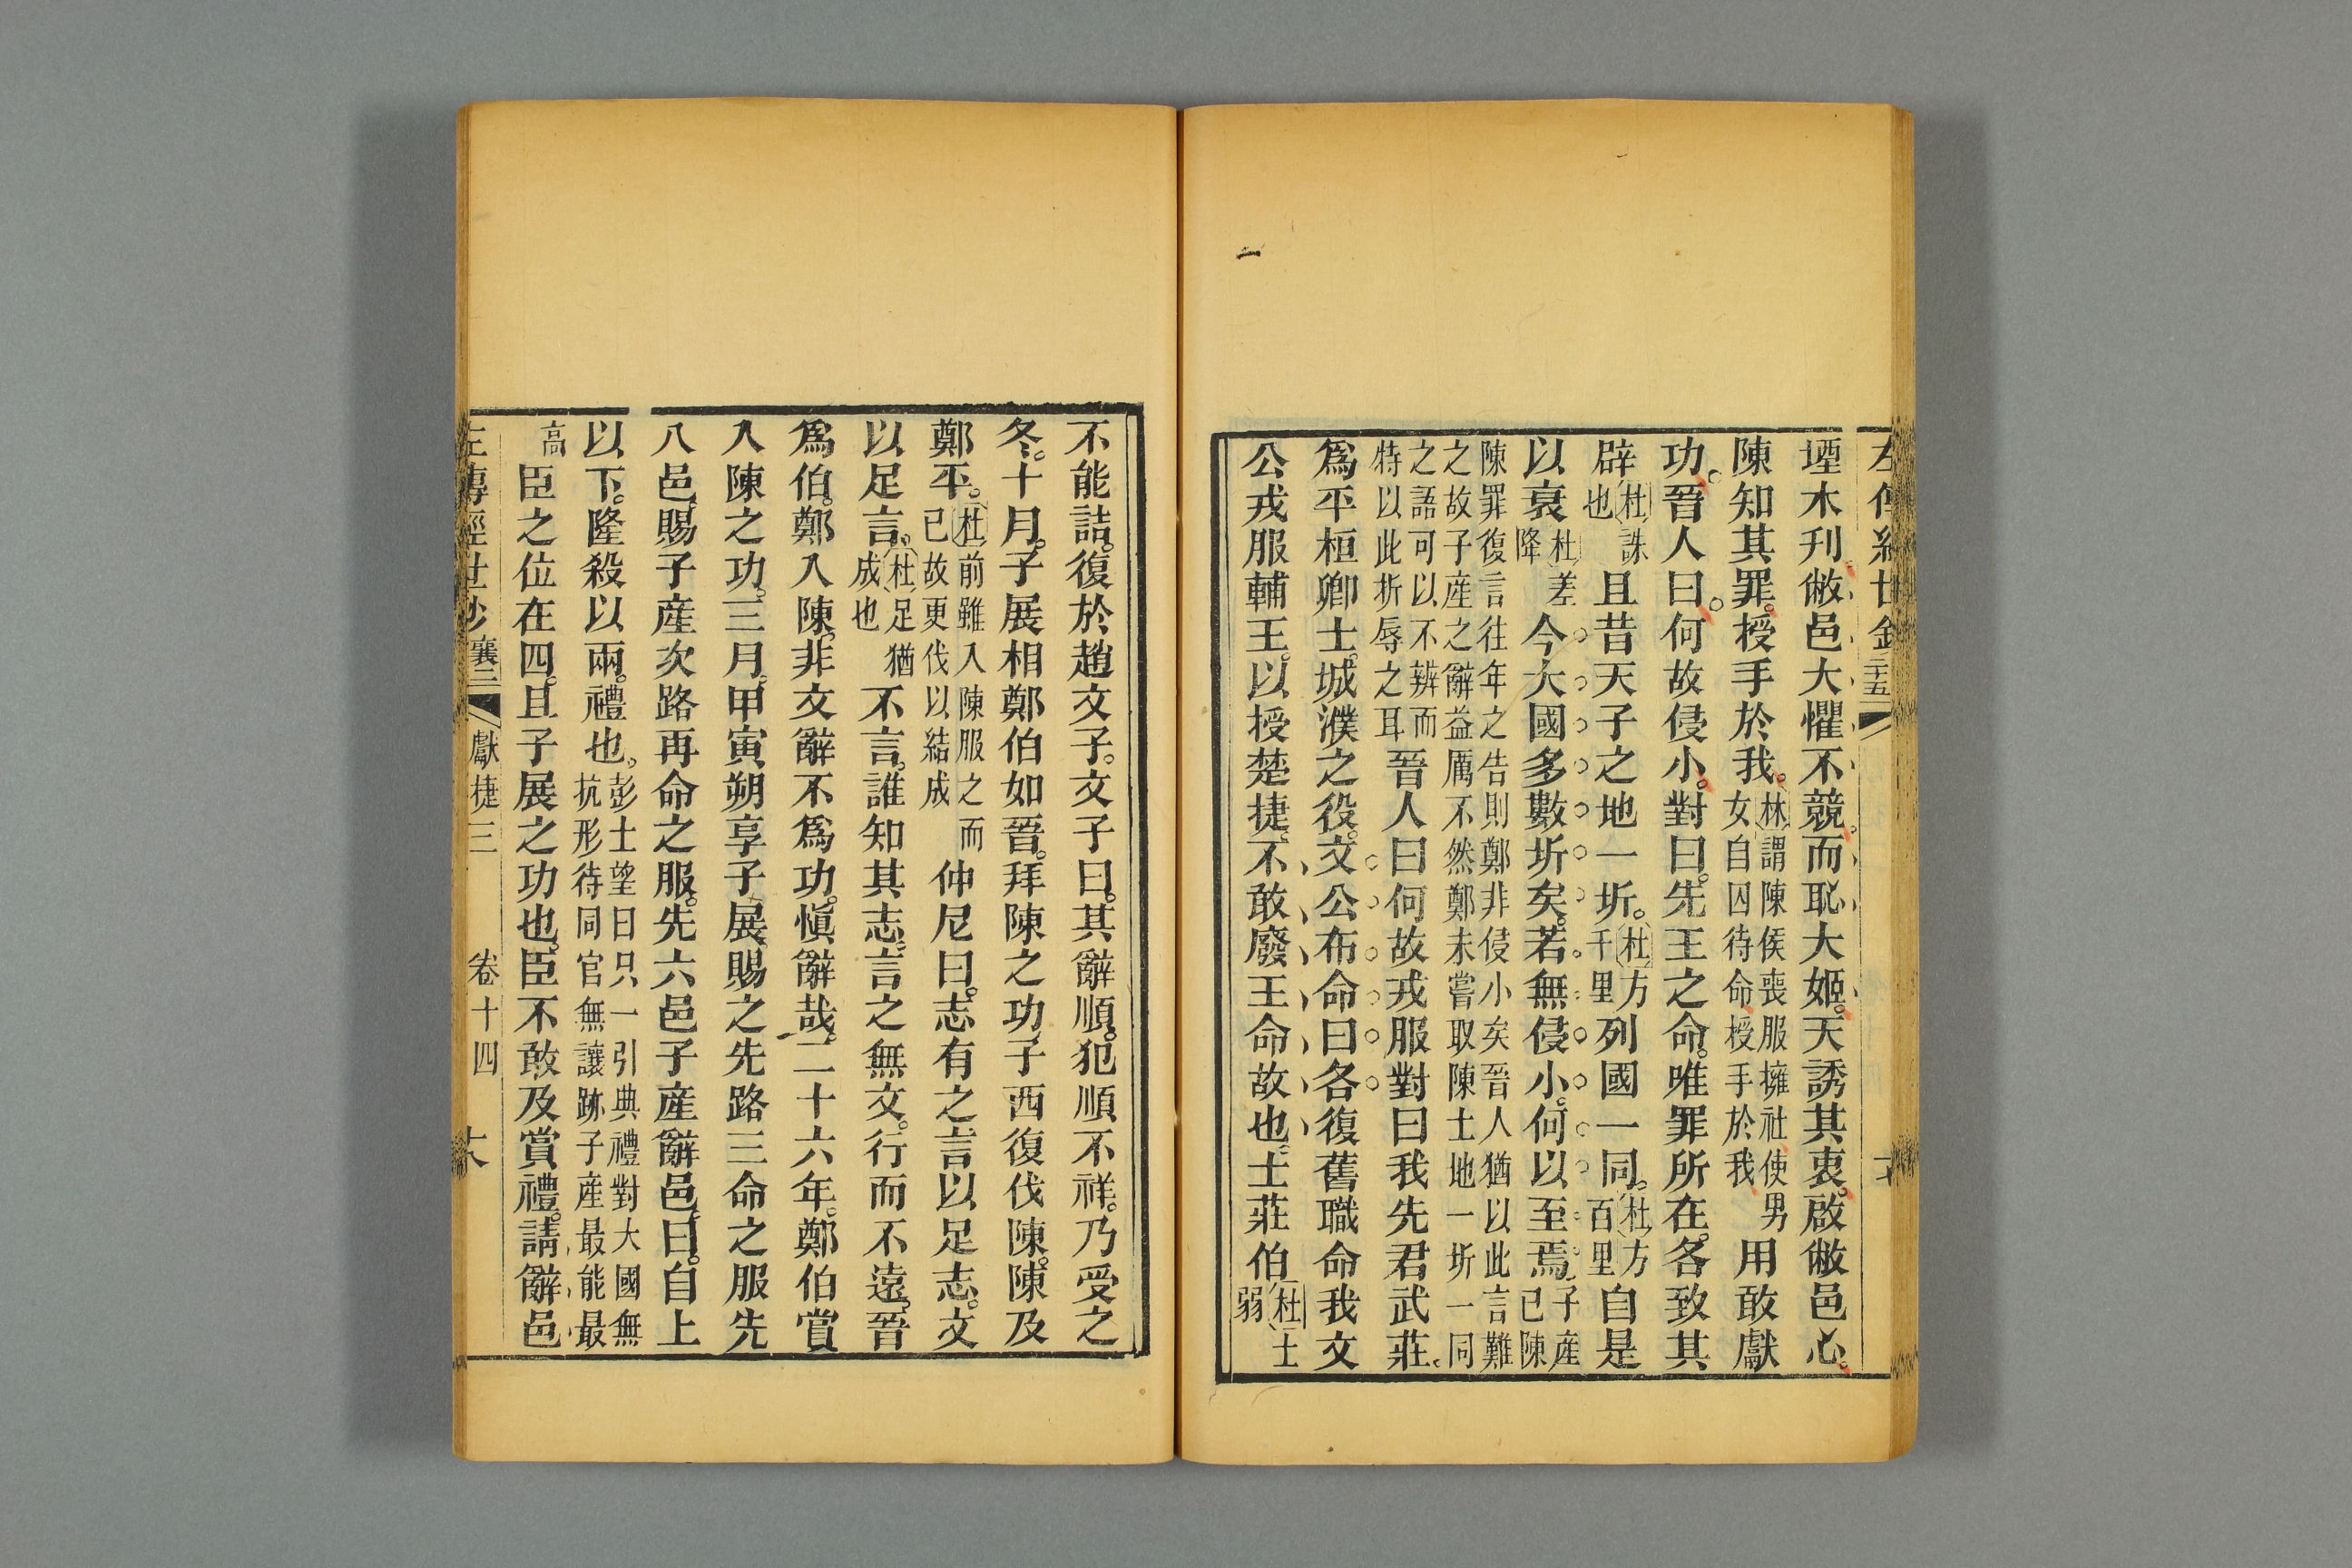 堙木刋敝邑大懼不競而恥大姬天誘其衷啟敝邑心
陳知其罪授手於我林謂陳侯喪服擁社使男女自囚待命授手於我用敢獻
功晉人曰何故侵小對曰先王之命唯罪所在各致其
辟杜誅也且昔天子之地一圻杜方千里列國一同杜方百里自是
以衰杜差降今大國多數圻矣若無侵小何以至焉子產已陳
陳罪復言往年之告則鄭非侵小矣晉人猶以此言難
之故子産之辭益厲不然鄭未嘗取陳土地一圻一同
之語可以不辨而
特以此折辱之耳晉人曰何故戎服對曰我先君武莊
爲平桓卿士城濮之役文公布命曰各復舊職命我文
公戎服輔王以授楚捷不敢廢王命故也士莊伯杜士弱
不能詰復於趙文子文子曰其辭順犯順不祥乃受之
冬十月子展相鄭伯如晉拜陳之功子西復伐陳陳及
鄭平杜前雖入陳服之而已故更伐以結成仲尼曰志有之言以足志文
以足言杜足猶成也不言誰知其志言之無文行而不遠晉
爲伯鄭入陳非文辭不爲功愼辭哉二十六年鄭伯賞
入陳之功三月甲寅朔享子展賜之先路三命之服先
八邑賜子産次路再命之服先六邑子産辭邑曰自上
以下隆殺以兩禮也彭士望曰只一引典禮對大國無抗形待同官無讓跡子産最能最
高臣之位在四且子展之功也臣不敢及賞禮請辭邑
左傳經世鈔襄二 獻捷三 卷十四 大